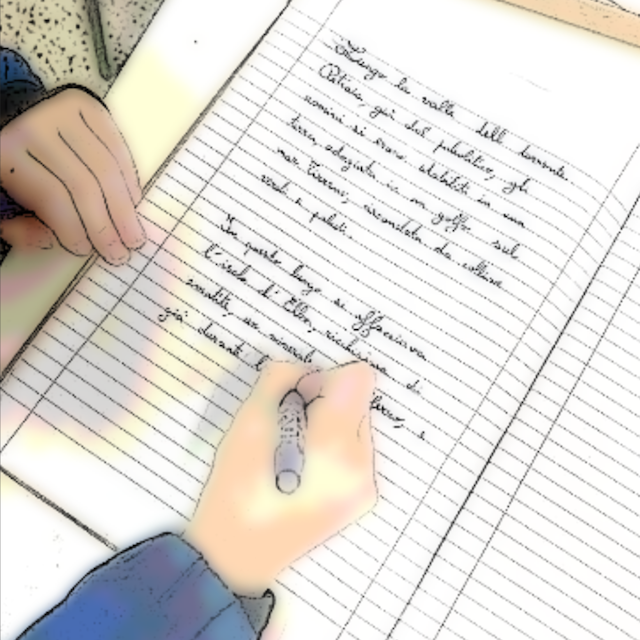 Lungo la valle dell torrente
Petraia, già dal paleolitico, gli
uomini si erano stabiliti in una
terra, adagiata in un golfo sul
mar Tirreno, circondata da colline
verdi e
In questo luogo si affacciava
l'isola di Elba, ricchissima di
un minerale
già durante l' ferro, e